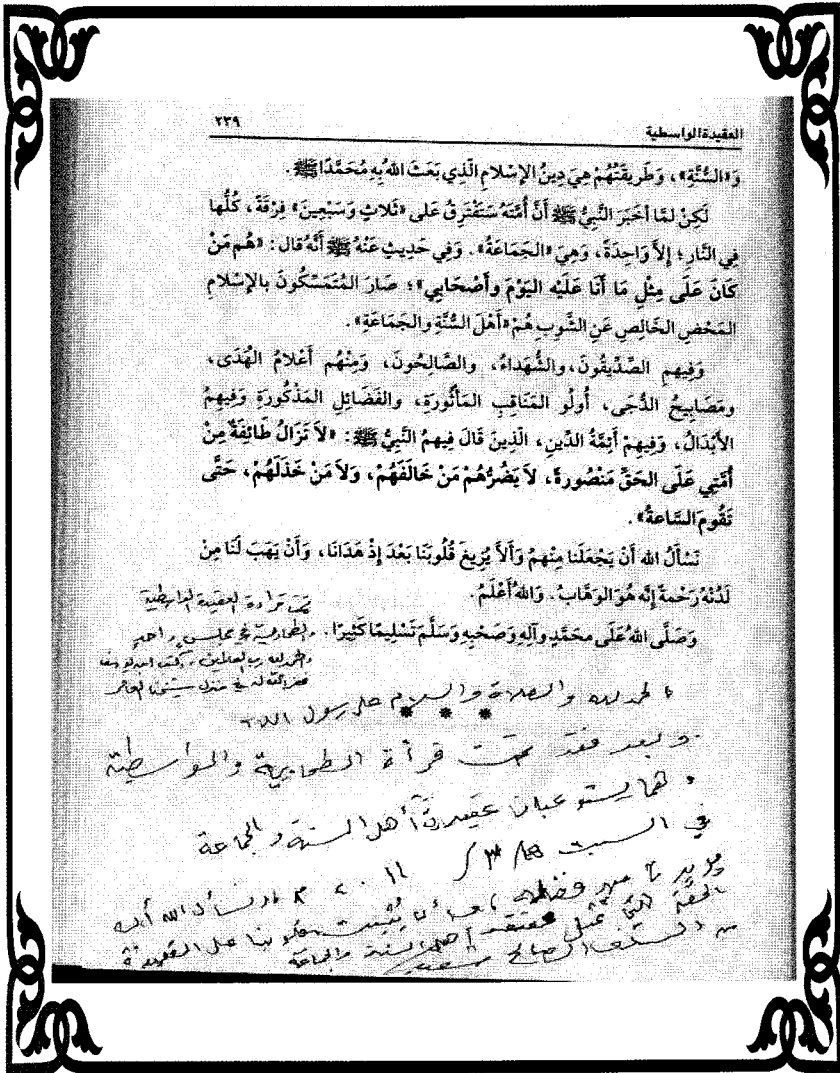 العقيدة الواسطية ٢٣٩
وَ«السُّنَّةِ»، وَطَرِيقَتُهُمْ هِيَ دِينُ الإِسْلَامِ الَّذِي بَعَثَ اللهُ بِهِ مُحَمَّدًا ﷺ.
لَكِنْ لَمَّا أَخْبَرَ النَّبِيُّ ﷺ أَنَّ أُمَّتَهُ سَتَفْتَرِقُ عَلَى «ثَلَاثٍ وَسَبْعِينَ» فِرْقَةً، كُلُّها
فِي النَّارِ؛ إِلاَّ وَاحِدَةً، وَهِيَ «الجَمَاعَةُ». وَفِي حَدِيثٍ عَنْهُ ﷺ أَنَّهُ قال: «هُم مَنْ
كَانَ عَلَى مِثْلِ مَا أَنَا عَلَيْهِ اليَوْمَ وأَصْحَابِي»؛ صَارَ المُتَمَسِّكُونَ بالإِسْلامِ
المَحْضِ الخَالِصِ عَنِ الشَّوبِ هُمْ «أَهْلَ السُّنَّةِ والجَمَاعَةِ».
وَفِيهِم الصِّدِّيقُونَ، والشُّهَداءُ، والصَّالِحُونَ، وَمِنْهُم أَعْلامُ الهُدَى،
ومَصَابِيحُ الدُّجَى، أُولُو المَنَاقِبِ المَأْثُورَةِ، والفَضَائِلِ المَذْكُورَةِ وَفِيهِمُ
الأَبْدَالُ، وَفِيهِمْ أَئِمَّةُ الدِّينِ، الَّذِينَ قَالَ فِيهِمُ النَّبِيُّ ﷺ: «لاَ تَزَالُ طَائِفَةٌ مِنْ
أُمَّتِي عَلَى الحَقِّ مَنْصُورةً، لاَ يَضُرُّهُمْ مَنْ خَالَفَهُمْ، وَلاَ مَنْ خَذَلَهُمْ، حَتَّى
تَقُومَ السَّاعَةُ».
نَسْأَلُ الله أَنْ يَجْعَلَنا مِنْهُمْ وَأَلاَّ يُزِيغَ قُلُوبَنَا بَعْدَ إِذْ هَدَانَا، وَأَنْ يَهَبَ لَنَا مِنْ
لَدُنْهُ رَحْمةً إِنَّه هُوَ الوَهَّابُ. وَاللهُ أَعْلَمُ.
وَصَلَّى اللهُ عَلَى محمَّدٍ وآلِهِ وَصَحْبِهِ وَسَلَّمَ تَسْلِيمًا كَثِيرًا.
تمت قراءة العقيدة الواسطية
والطحاوية في مجلس واحد
والحمد لله رب العالمين
* * *
الحمد لله والصلاة والسلام على رسول الله
وبعد فقد تمت قرأة الطحاوية والواسطية
وهما يستوعبان عقيدة أهل السنة والجماعة
في السبت
نسأل الله أن
يثبت قلوبنا على العقيدة
الحقة التي تمثل معتقد أهل السنة والجماعة
من السلف الصالح